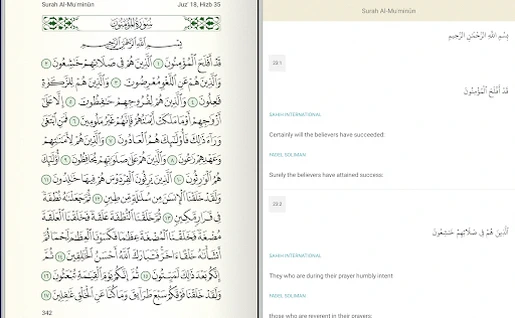 Surah Al-Mu'minûn
Juz' 18, Hizb 35
سُورَةُ المُؤْمِنُونَ
بِسْمِ اللَّهِ الرَّحْمَٰنِ الرَّحِيمِ
قَدْ أَفْلَحَ الْمُؤْمِنُونَ ١ الَّذِينَ هُمْ فِي صَلَاتِهِمْ خَاشِعُونَ ٢
وَالَّذِينَ هُمْ عَنِ اللَّغْوِ مُعْرِضُونَ ٣ وَالَّذِينَ هُمْ لِلزَّكَاةِ
فَاعِلُونَ ٤ وَالَّذِينَ هُمْ لِفُرُوجِهِمْ حَافِظُونَ ٥ إِلَّا عَلَىٰ
أَزْوَاجِهِمْ أَوْ مَا مَلَكَتْ أَيْمَانُهُمْ فَإِنَّهُمْ غَيْرُ مَلُومِينَ ٦ فَمَنِ ابْتَغَىٰ
وَرَاءَ ذَٰلِكَ فَأُولَٰئِكَ هُمُ الْعَادُونَ ٧ وَالَّذِينَ هُمْ لِأَمَانَاتِهِمْ
وَعَهْدِهِمْ رَاعُونَ ٨ وَالَّذِينَ هُمْ عَلَىٰ صَلَوَاتِهِمْ يُحَافِظُونَ ٩ أُولَٰئِكَ
هُمُ الْوَارِثُونَ ١٠ الَّذِينَ يَرِثُونَ الْفِرْدَوْسَ هُمْ فِيهَا خَالِدُونَ ١١
وَلَقَدْ خَلَقْنَا الْإِنسَانَ مِن سُلَالَةٍ مِّن طِينٍ ١٢ ثُمَّ جَعَلْنَاهُ نُطْفَةً
فِي قَرَارٍ مَّكِينٍ ١٣ ثُمَّ خَلَقْنَا النُّطْفَةَ عَلَقَةً فَخَلَقْنَا الْعَلَقَةَ
مُضْغَةً فَخَلَقْنَا الْمُضْغَةَ عِظَامًا فَكَسَوْنَا الْعِظَامَ لَحْمًا ثُمَّ
أَنشَأْنَاهُ خَلْقًا آخَرَ فَتَبَارَكَ اللَّهُ أَحْسَنُ الْخَالِقِينَ ١٤ ثُمَّ
إِنَّكُم بَعْدَ ذَٰلِكَ لَمَيِّتُونَ ١٥ ثُمَّ إِنَّكُمْ يَوْمَ الْقِيَامَةِ تُبْعَثُونَ ١٦
وَلَقَدْ خَلَقْنَا فَوْقَكُمْ سَبْعَ طَرَائِقَ وَمَا كُنَّا عَنِ الْخَلْقِ غَافِلِينَ ١٧
342
Surah Al-Mu'minûn
بِسْمِ اللَّهِ الرَّحْمَٰنِ الرَّحِيمِ
23:1
قَدْ أَفْلَحَ الْمُؤْمِنُونَ
SAHIH INTERNATIONAL
Certainly will the believers have succeeded:
FADEL SOLIMAN
Surely the believers have attained success:
23:2
الَّذِينَ هُمْ فِي صَلَاتِهِمْ خَاشِعُونَ
SAHIH INTERNATIONAL
They who are during their prayer humbly intent
FADEL SOLIMAN
those who are reverent in their prayers;